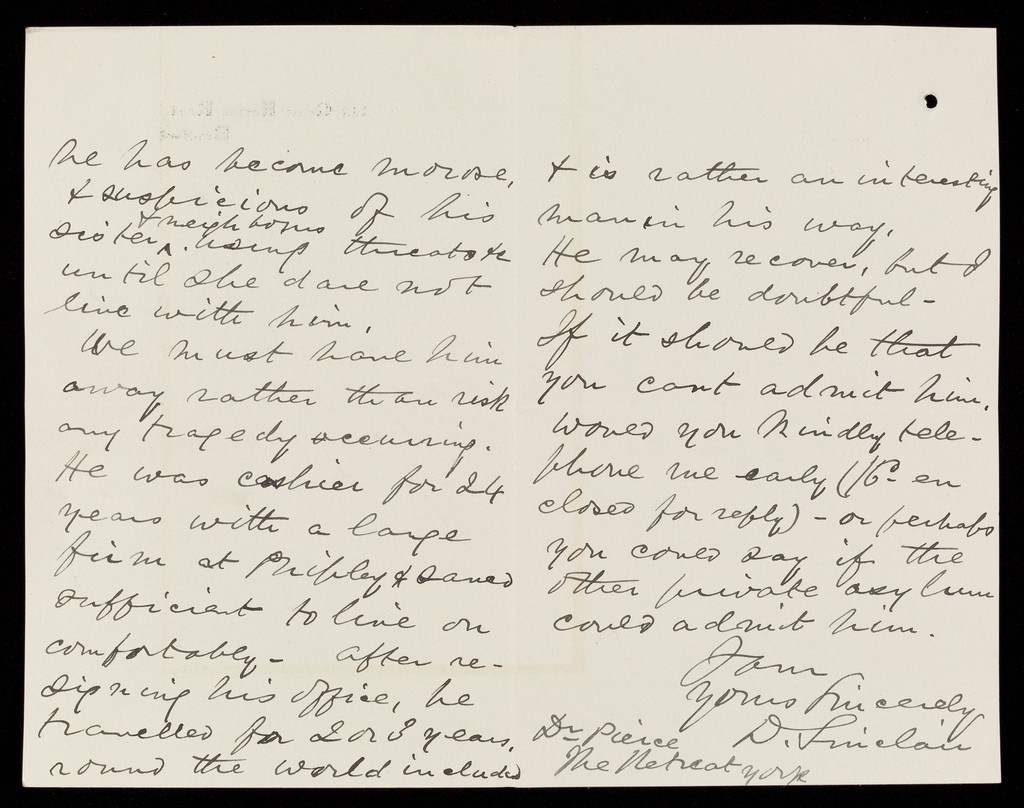 he has become morose,
& suspicious of his
& neighbours
sister, using threats &c
until she dare not
live with him.
We must have him
away rather than risk
any tragedy occurring.
He was cashier for 24
years with a large
firm at Shipley & saved
sufficient to live on
comfortably - After re-
signing his office, he
travelled for 2 or 3 years,
round the world included
& is rather an interesting
man in his way.
He may recover, but I
should be doubtful -
If it should be that
you cant admit him,
would you kindly tele-
phone me early (1/6 en
closed for reply) - or perhaps
you could say if the
other private asylum
could admit him.
I am
Yours Sincerely
D. Sinclair
Dr Pierce
The Retreat York